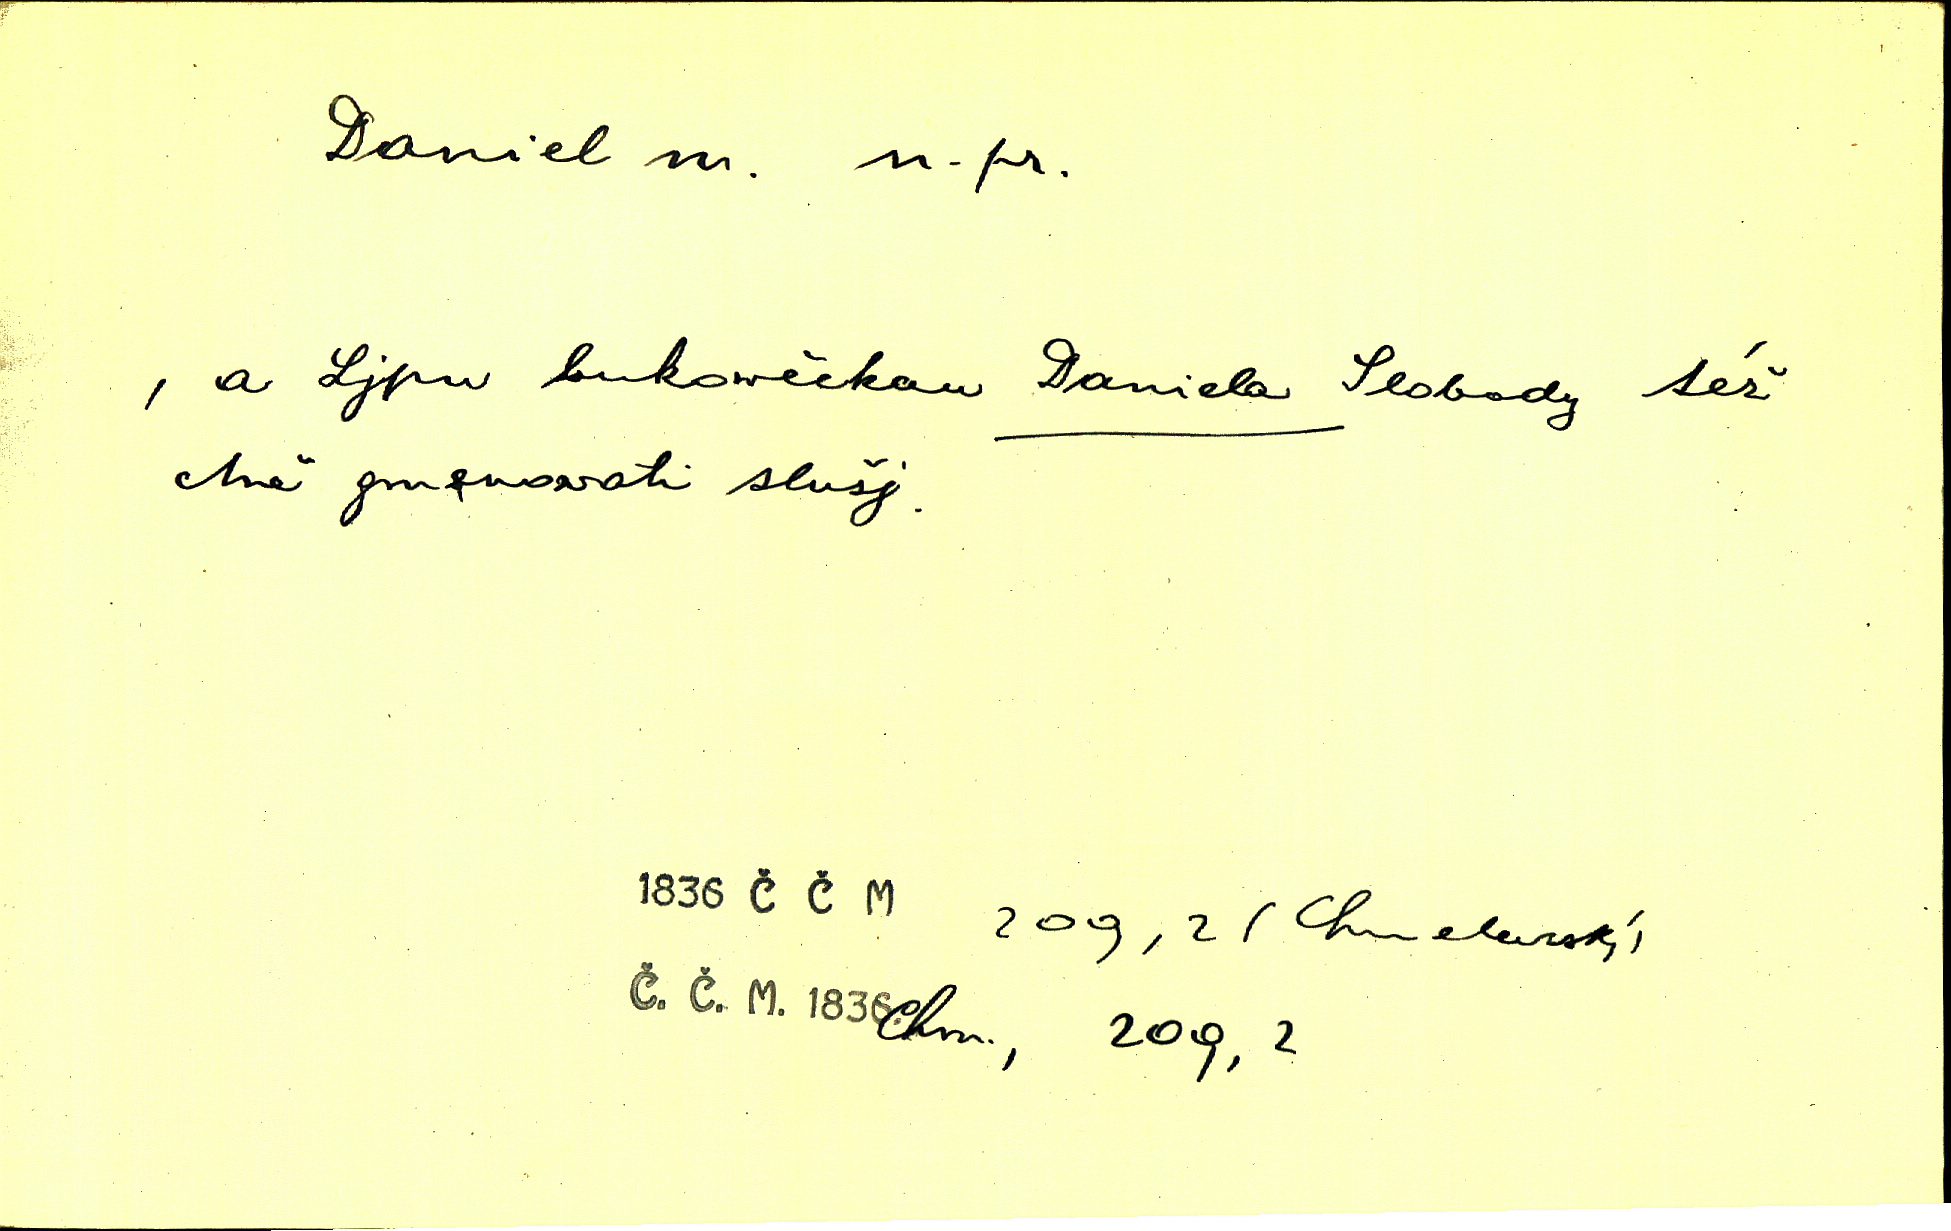 Daniel m. n. pr.
, a Ljpu bukowěckau Daniela Slobody též
ctně gmenowati slušj.
1836 Č Č M 209, 2 / Chmelenský /
Č. Č. M. 1836. Chm., 209, 2